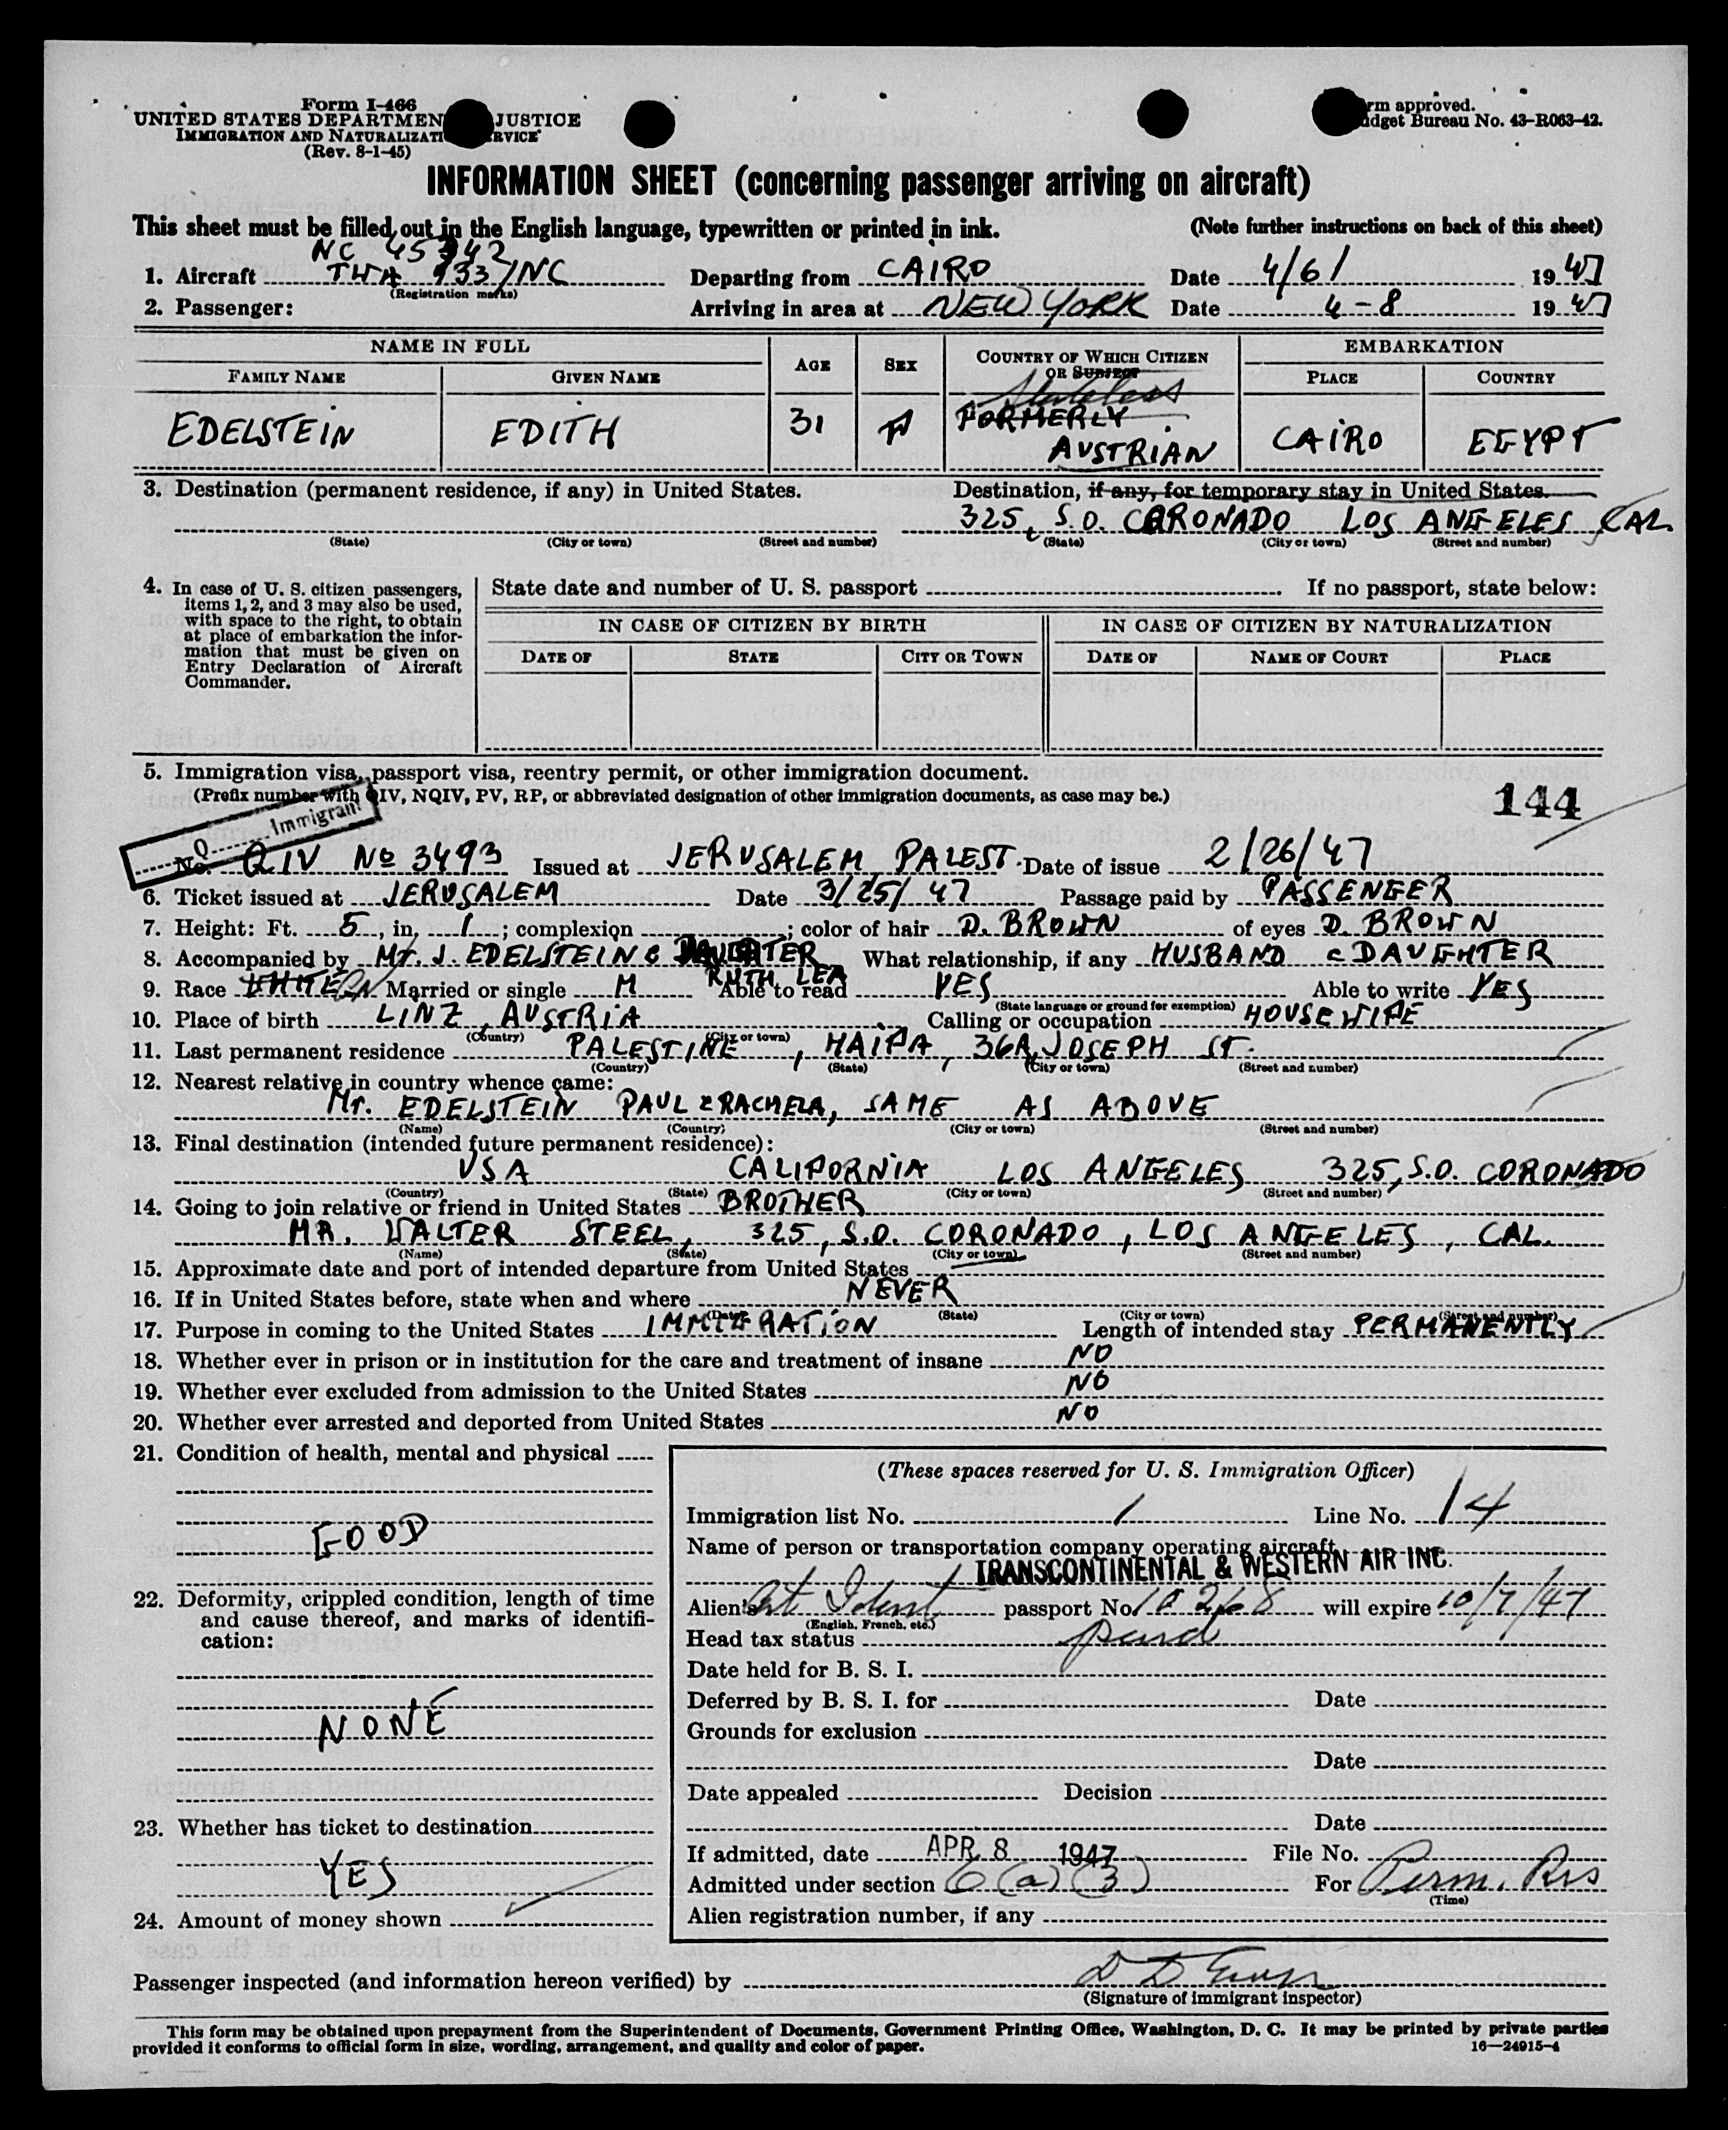 Form I-466
UNITED STATES DEPARTMEN JUSTICE
IMMIGRATION AND NATURALIZATI RVICE
(Rev. 8-1-45)
rm approved.
dget Bureau No. 43-R063-42.
INFORMATION SHEET (concerning passenger arriving on aircraft)
This sheet must be filled out in the English language, typewritten or printed in ink. (Note further instructions on back of this sheet)
NC 45342
1. Aircraft TWA 933/NC Departing from CAIRO Date 4/6/ 1947
(Registration marks)
2. Passenger: Arriving in area at NEW YORK Date 4-8 1947
NAME IN FULL AGE SEX COUNTRY OF WHICH CITIZEN OR SUBJECT EMBARKATION
FAMILY NAME GIVEN NAME PLACE COUNTRY
Stateless
EDELSTEIN EDITH 31 F FORMERLY AUSTRIAN CAIRO EGYPT
3. Destination (permanent residence, if any) in United States. Destination, if any, for temporary stay in United States.
325, S.O. CORONADO LOS ANGELES CAL.
(State) (City or town) (Street and number) (State) (City or town) (Street and number)
4. In case of U. S. citizen passengers, items 1, 2, and 3 may also be used, with space to the right, to obtain at place of embarkation the information that must be given on Entry Declaration of Aircraft Commander.
State date and number of U. S. passport If no passport, state below:
IN CASE OF CITIZEN BY BIRTH IN CASE OF CITIZEN BY NATURALIZATION
DATE OF STATE CITY OR TOWN DATE OF NAME OF COURT PLACE
5. Immigration visa, passport visa, reentry permit, or other immigration document.
(Prefix number with QIV, NQIV, PV, RP, or abbreviated designation of other immigration documents, as case may be.) 144
Q Immigrant
No. QIV No 3493 Issued at JERUSALEM, PALEST. Date of issue 2/26/47
6. Ticket issued at JERUSALEM Date 3/25/47 Passage paid by PASSENGER
7. Height: Ft. 5, in. 1; complexion ; color of hair D. BROWN of eyes D. BROWN
8. Accompanied by Mr. J. EDELSTEIN & DAUGHTER What relationship, if any HUSBAND & DAUGHTER
RUTH LEA
9. Race WHITE Married or single M Able to read YES Able to write YES
(State language or ground for exemption)
10. Place of birth LINZ, AUSTRIA Calling or occupation HOUSEWIFE
(Country) (City or town)
11. Last permanent residence PALESTINE, HAIFA, 36A, JOSEPH ST.
(Country) (State) (City or town) (Street and number)
12. Nearest relative in country whence came:
Mr. EDELSTEIN PAUL & RACHELA, SAME AS ABOVE
(Name) (Country) (City or town) (Street and number)
13. Final destination (intended future permanent residence):
USA CALIFORNIA LOS ANGELES 325, S.O. CORONADO
(Country) (State) (City or town) (Street and number)
14. Going to join relative or friend in United States BROTHER
MR. WALTER STEEL, 325, S.O. CORONADO, LOS ANGELES, CAL.
(Name) (State) (City or town) (Street and number)
15. Approximate date and port of intended departure from United States
16. If in United States before, state when and where NEVER
(Date) (State) (City or town) (Street and number)
17. Purpose in coming to the United States IMMIGRATION Length of intended stay PERMANENTLY
18. Whether ever in prison or in institution for the care and treatment of insane NO
19. Whether ever excluded from admission to the United States NO
20. Whether ever arrested and deported from United States NO
21. Condition of health, mental and physical
GOOD
22. Deformity, crippled condition, length of time and cause thereof, and marks of identification:
NONE
23. Whether has ticket to destination
YES
24. Amount of money shown
(These spaces reserved for U. S. Immigration Officer)
Immigration list No. 1 Line No. 14
Name of person or transportation company operating aircraft
TRANSCONTINENTAL & WESTERN AIR INC.
Alien's Ident passport No. 10268 will expire 10/7/47
(English, French, etc.)
Head tax status paid
Date held for B. S. I.
Deferred by B. S. I. for Date
Grounds for exclusion
Date
Date appealed Decision
Date
If admitted, date APR 8 1947 File No.
Admitted under section 6(a)(3) For Perm. Res
(Time)
Alien registration number, if any
Passenger inspected (and information hereon verified) by
(Signature of immigrant inspector)
This form may be obtained upon prepayment from the Superintendent of Documents, Government Printing Office, Washington, D. C. It may be printed by private parties
provided it conforms to official form in size, wording, arrangement, and quality and color of paper. 16—24915-4